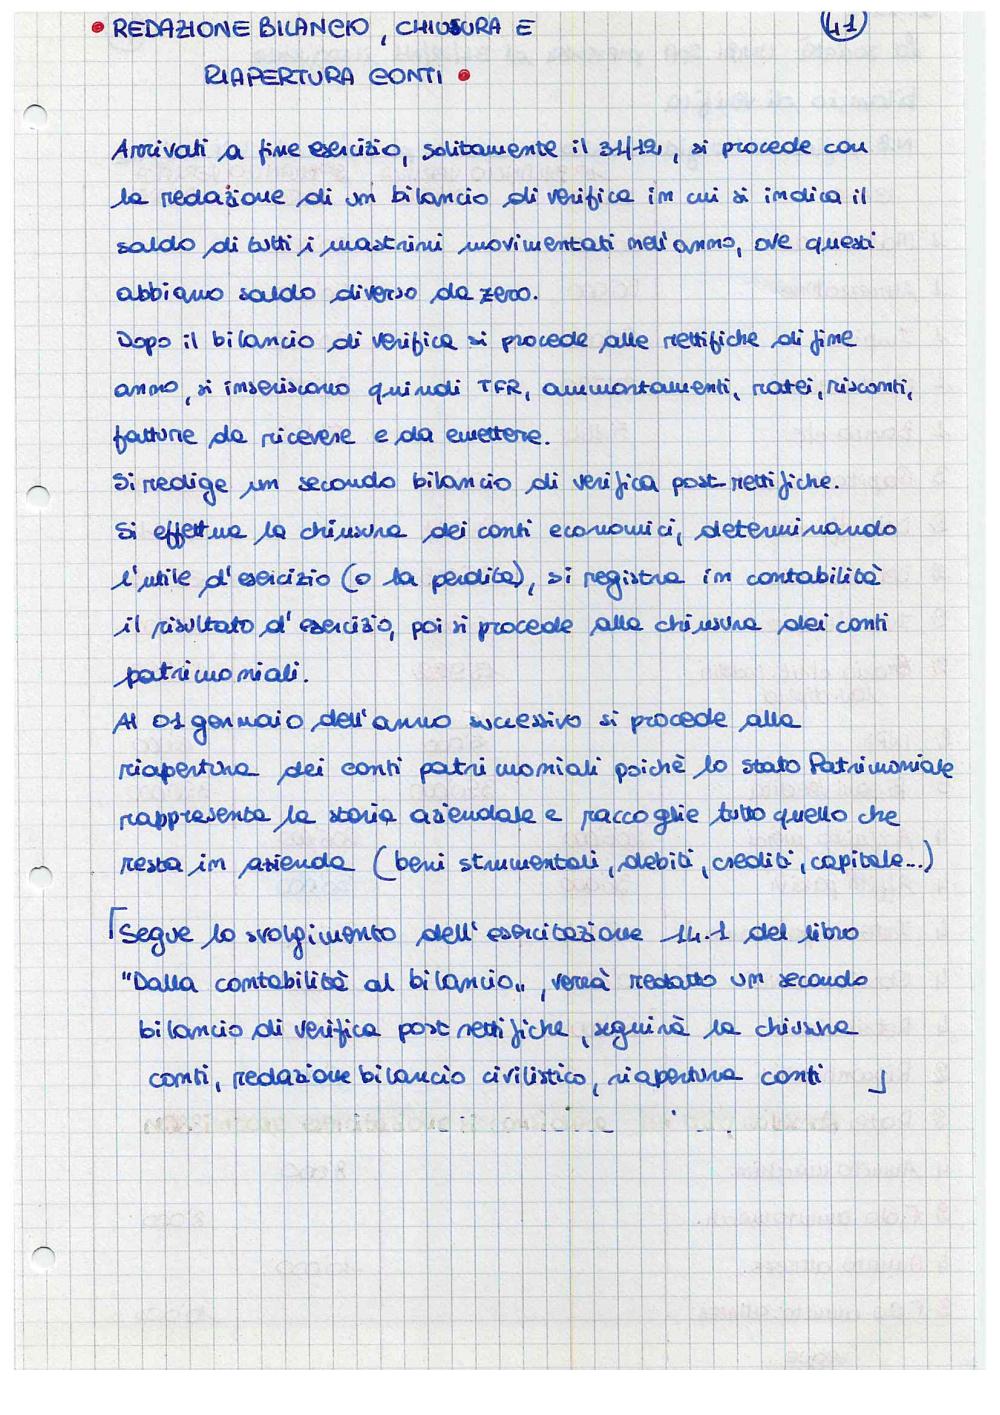 • REDAZIONE BILANCIO, CHIUSURA E
41
RIAPERTURA CONTI •
Arrivati a fine esercizio, solitamente il 31/12, si procede con
la redazione di un bilancio di verifica in cui si indica il
saldo di tutti i mastrini movimentati nell'anno, ove questi
abbiano saldo diverso da zero.
Dopo il bilancio di verifica si procede alle rettifiche di fine
anno, si inseriscono quindi TFR, ammortamenti, ratei, risconti,
fatture da ricevere e da emettere.
Si redige un secondo bilancio di verifica post rettifiche.
Si effettua la chiusura dei conti economici, determinando
l'utile d'esercizio (o la perdita), si registra in contabilità
il risultato d'esercizio, poi si procede alla chiusura dei conti
patrimoniali.
Al 01 gennaio dell'anno successivo si procede alla
riapertura dei conti patrimoniali poichè lo stato Patrimoniale
rappresenta la storia aziendale e raccoglie tutto quello che
resta in azienda (beni strumentali, debiti, crediti, capitale...)
⌈Segue lo svolgimento dell'esercitazione 14.1 del libro
"Dalla contabilità al bilancio", verrà redatto un secondo
bilancio di verifica post rettifiche, seguirà la chiusura
conti, redazione bilancio civilistico, riapertura conti ⌋